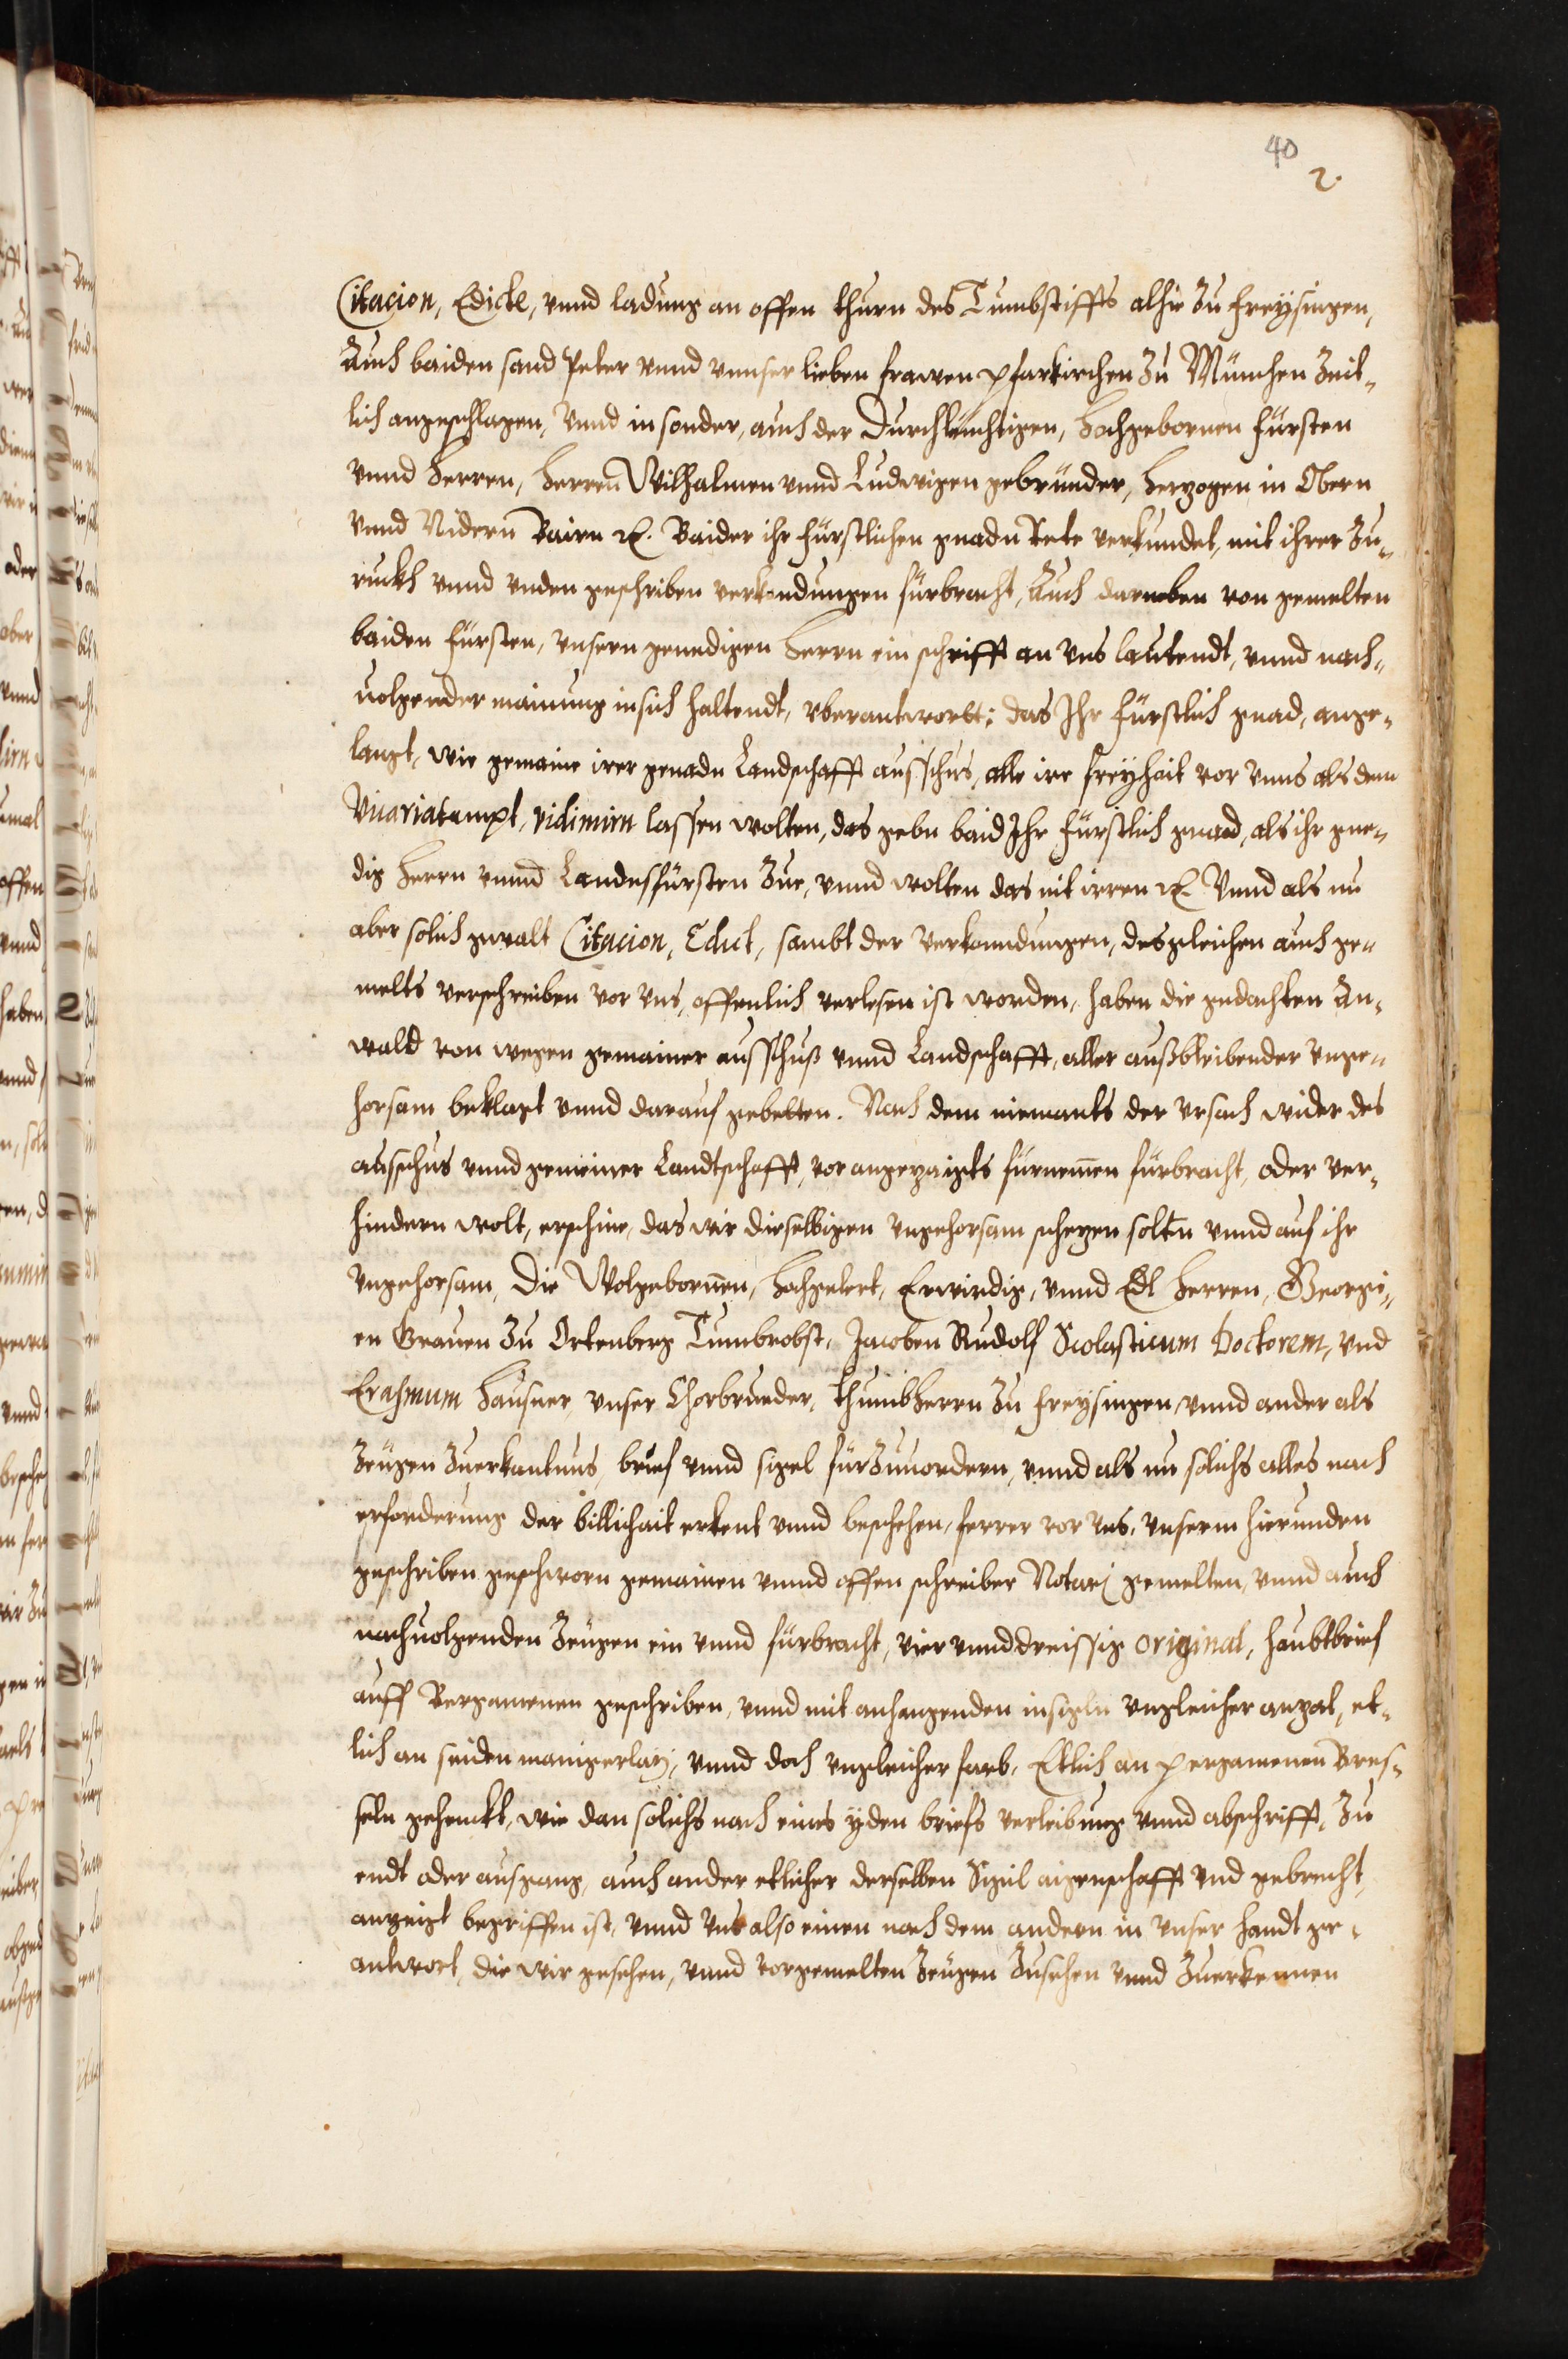 40
2.
Citacion, Edicte, vnnd ladung an offen thurn des Tumbstiffts alhie zu Freysingen,
Auch baiden sand Peter vnnd vnnser lieben frawen pfarkirchen zu München Zeit-
lich angeschlagen, Vnnd in sonder, auch der Durchleuchtigen, Hochgebornen Fürsten
vnnd Herren, Herren Wilhalmen vnnd Ludwigen gebrüeder, Herzogen in Obern
vnnd Nidern Bairn etc. Baider ihr Fürstlichen gnadn Rete verkundet, mit ihrer Zu-
ruckh vnnd vnden geschriben verkondungen fürbracht, Auch darneben von gemelten
baiden Fürsten, vnsern genedigen Herrn ein schrifft an vns lautendt, vnnd nach-
uolgender mainung in sich haltendt, vberantwort: das Ihr Fürstlich gnad, ange-
langt, wie gemaine irer genadn Landschafft ausschus, alle ire freyhait vor vnns als dem
Vicariatampt, vidimirn lassen wolten, das gebn baid Ihr Fürstlich gnad, als ihr gne-
dig Herrn vnnd Landesfürsten Zue, vnnd wolten das nit irren etc. Vnnd als nu
aber solich gwalt Citacion, Edict, sambt der Verkonndungen, desgleichen auch ge-
melts verschreiben vor vns, offenlich verlesen ist worden, haben die gedachten An-
wald von wegen gemainer ausschuß vnnd Landschafft, aller außbleibender vnge-
horsam beklagt vnnd darauf gebetten. Nach dem niemants der vrsach wider des
ausschus vnnd gemeiner Landtschafft, vor angezaigts fürnemen fürbracht, oder ver-
hindern wolt, erschine, das wir dieselbigen vngehorsam schezen soltn vnnd auf ihr
vngehorsam, Die Wolgebornen, Hochgelert, Erwirdig, vnnd Edl Herren, Georgi-
en Grauen zu Ortenberg Tumbrobst, Jacoben Rudolf Scolasticum Doctorem, vnd
Erasmum Hausner, vnser Chorbrueder, thumbherrn zu Freysingen, vnnd ander als
Zeugen Zuerkantnus, brief vnnd sigel fürzuuordern, vnnd als nu solichs alles nach
erforderung der billichait erkent vnnd beschehen, ferrer vor vns, vnserm hierunden
geschriben geschworn gemainen vnnd offen schreiber Notarj gemelten, vnnd auch
nachuolgenden Zeugen ein vnnd fürbracht, vier vnnd dreissig original, haubtbrief
auff Bergamenen geschriben, vnnd mit anhangenden insigln vngleicher anzal, et-
lich an seiden manigerlaÿ, vnnd doch vngleicher farb, Etlich an pergamenen Bres-
seln gehenckt, wie dan solichs nach eines yden briefs verleibung vnnd abschrifft, Zu
endt oder ausgang, auch ander etlicher derselben Sigil aigenschafft vnd gebrecht,
anzeigt begriffen ist, vnnd vns also einen nach dem andern in vnser handt ge-
antwort, die wir gesehen, vnnd vorgemelten Zeugen Zusehen vnnd Zuerkennen